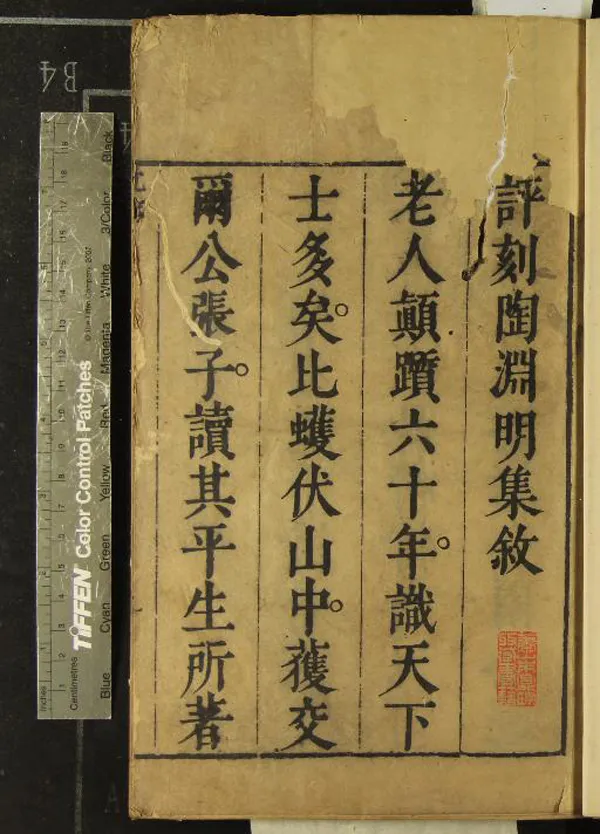 評刻陶淵明集敘
老人顛躓六十年。識天下
士多矣。比蠖伏山中。獲交
爾公張子。讀其平生所著
B4
TIFFEN Color Control Patches
© The Tiffen Company, 2007
Inches
Centimetres
Blue Cyan Green Yellow Red Magenta White 3/Color Black